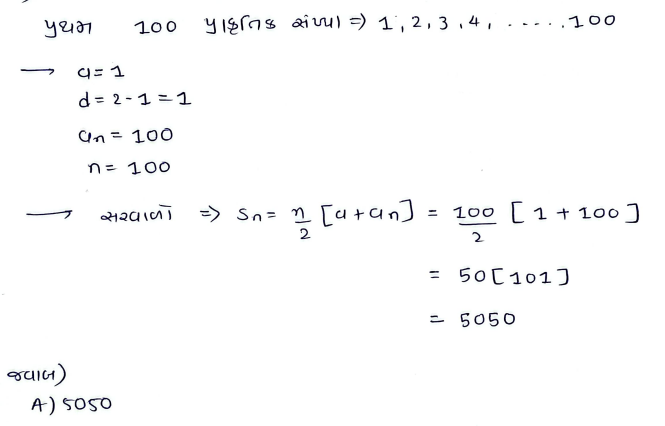 પ્રથમ 100 પ્રાકૃતિક સંખ્યા ⇒ 1, 2, 3, 4, ..... 100
→ a = 1
d = 2 - 1 = 1
an = 100
n = 100
→ સરવાળો ⇒ Sn = n/2 [a + an] = 100/2 [1 + 100]
= 50 [101]
= 5050
જવાબ)
A) 5050